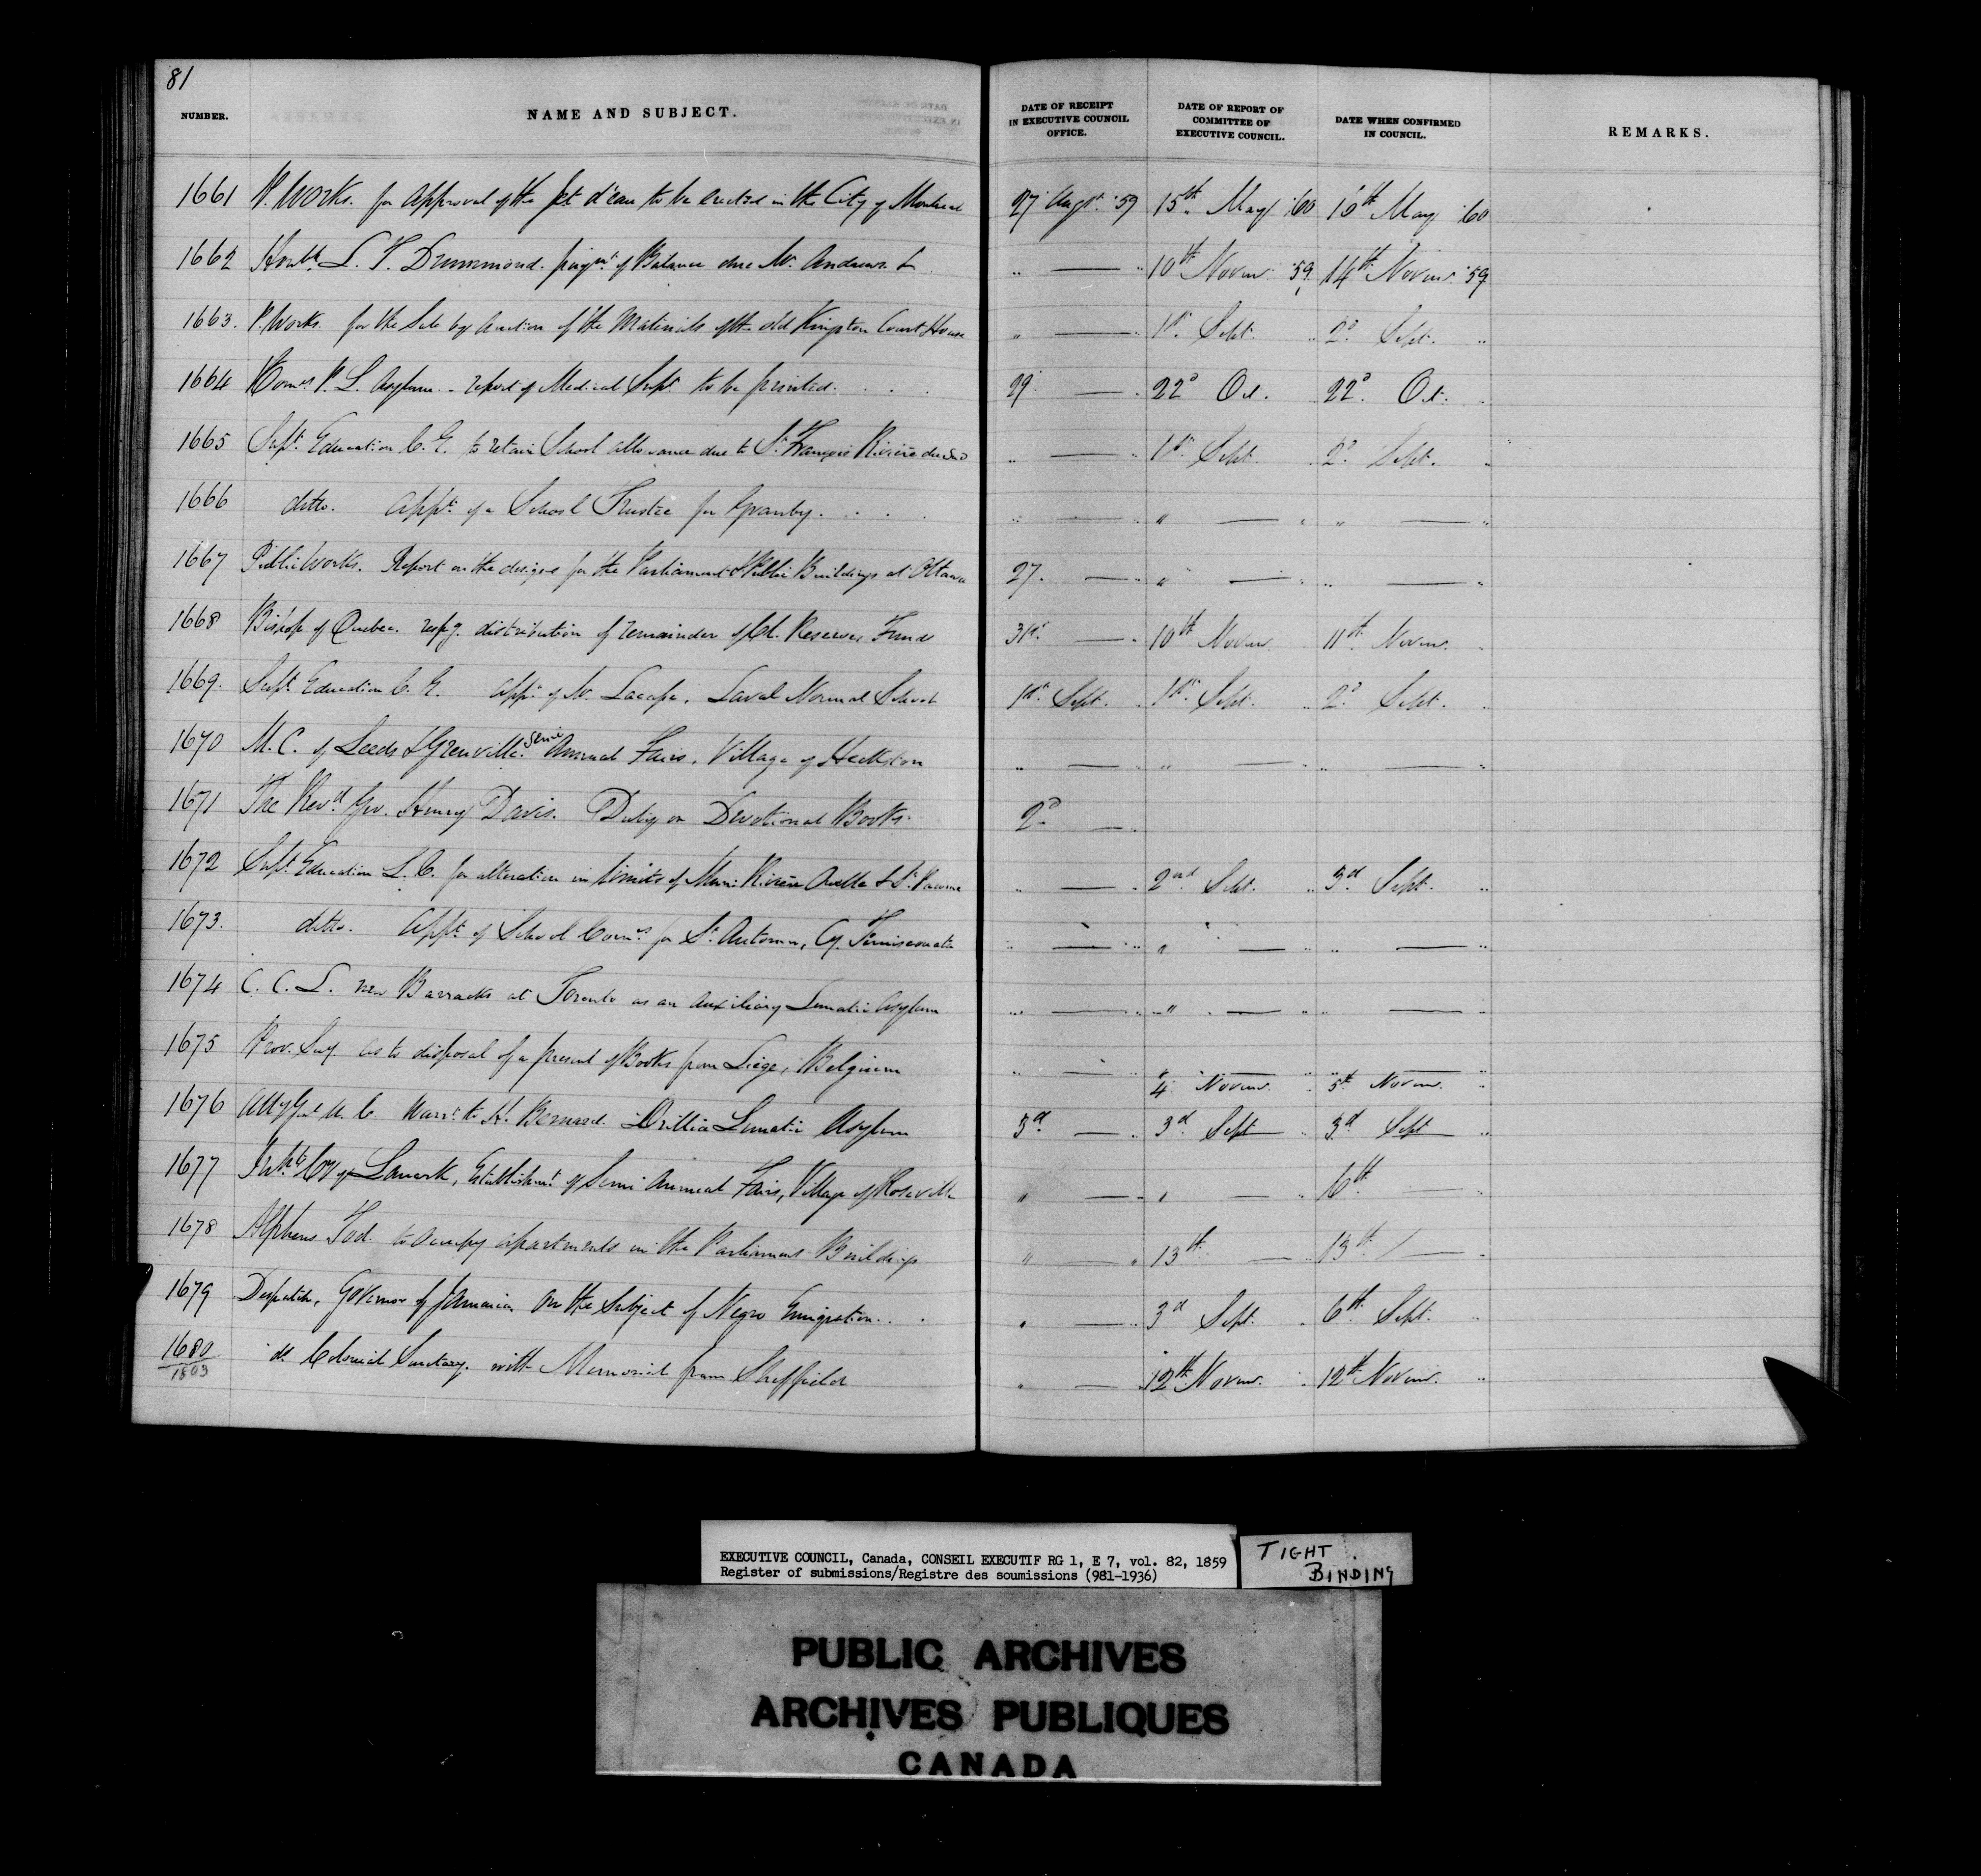 81
NUMBER. NAME AND SUBJECT. DATE OF RECEIPT IN EXECUTIVE COUNCIL OFFICE. DATE OF REPORT OF COMMITTEE OF EXECUTIVE COUNCIL. DATE WHEN CONFIRMED IN COUNCIL. REMARKS.
1661 P. Works. for approval of the Jet d'eau to be erected in the City of Montreal 27 Augt. '59 15th May '60 16th May '60
1662 Honble L. T. Drummond. paymt. of Balance due Mr. Andrews „ — „ 10th Novem. '59 14th Novem. '59
1663. P. Works. for the Sale by Auction of the Materials of the old Kingston Court House „ — „ 1st Sept. „ 2d Sept. „
1664 Comrs P. L. Asylum - report of Medical Supt. to be printed. . . . 29 — „ 22d Oct. 22d Oct. „
1665 Supt. Education C. E. to retain School allowance due to St. François Rivière du Sud „ — „ 1st Sept. „ 2d Sept. „
1666 ditto. Appt. of a School Trustee for Granby. . . . „ — „ „ — „ „ — „
1667 Public Works. Report on the designs for the Parliament & Public Buildings at Ottawa 27. — „ „ — „ „ — „
1668 Bishop of Quebec. respg. distribution of remainder of Cl. Reserves Funds 31st. — „ 10th Novem. 11th Novem. „
1669. Supt. Education C. E. Appt. of Mr. Laval Normal School 1st Sept. „ 1st Sept. „ 2d Sept. „
1670 M. C. of Leeds & Grenville. Semi Annual Fairs, Village of Heckston „ — „ „ — „ „ — „
1671 The Revd. Geo. Henry Davis. Duty on Devotional Books. 2d — „
1672 Supt. Education L. C. for alteration in limits of Muni: Rivière Ouelle & St. Pacome „ — „ 2nd Sept. „ 3d Sept. „
1673. ditto. Appt. of School Comrs for St. Antonin, Cy. Temiscouata „ — „ „ — „ „ — „
1674 C. C. L. new Barracks at Toronto as an Auxiliary Lunatic Asylum „ — „ „ — „ „ — „
1675 Prov. Secy. as to disposal of a present of Books from Liège, Belgium „ — „ „ — „ „ — „
4 Novem. „ 5th Novem. „
1676 Atty Genl U. C. Warrt. to H. Bernard. Orillia Lunatic Asylum 3d — „ 3d Sept „ 3d Sept „
1677 Inhts Cy of Lanark, Establishmt. of Semi Annual Fairs, Village of Roseville „ — „ „ — „ 6th — „
1678 Alpheus Tod. to occupy apartments in the Parliament Buildings „ — „ 13th — „ 13th — „
1679 Despatch, Governor of Jamaica on the Subject of Negro Emigration. . . „ — „ 3d Sept. „ 6th Sept. „
1680 do. Colonial Secretary. with Memorial from Sheffield „ — „ 12th Novem. „ 12th Novem. „
1803
EXECUTIVE COUNCIL, Canada, CONSEIL EXECUTIF RG 1, E 7, vol. 82, 1859
Register of submissions/Registre des soumissions (981-1936)
TIGHT BINDING
PUBLIC ARCHIVES
ARCHIVES PUBLIQUES
CANADA